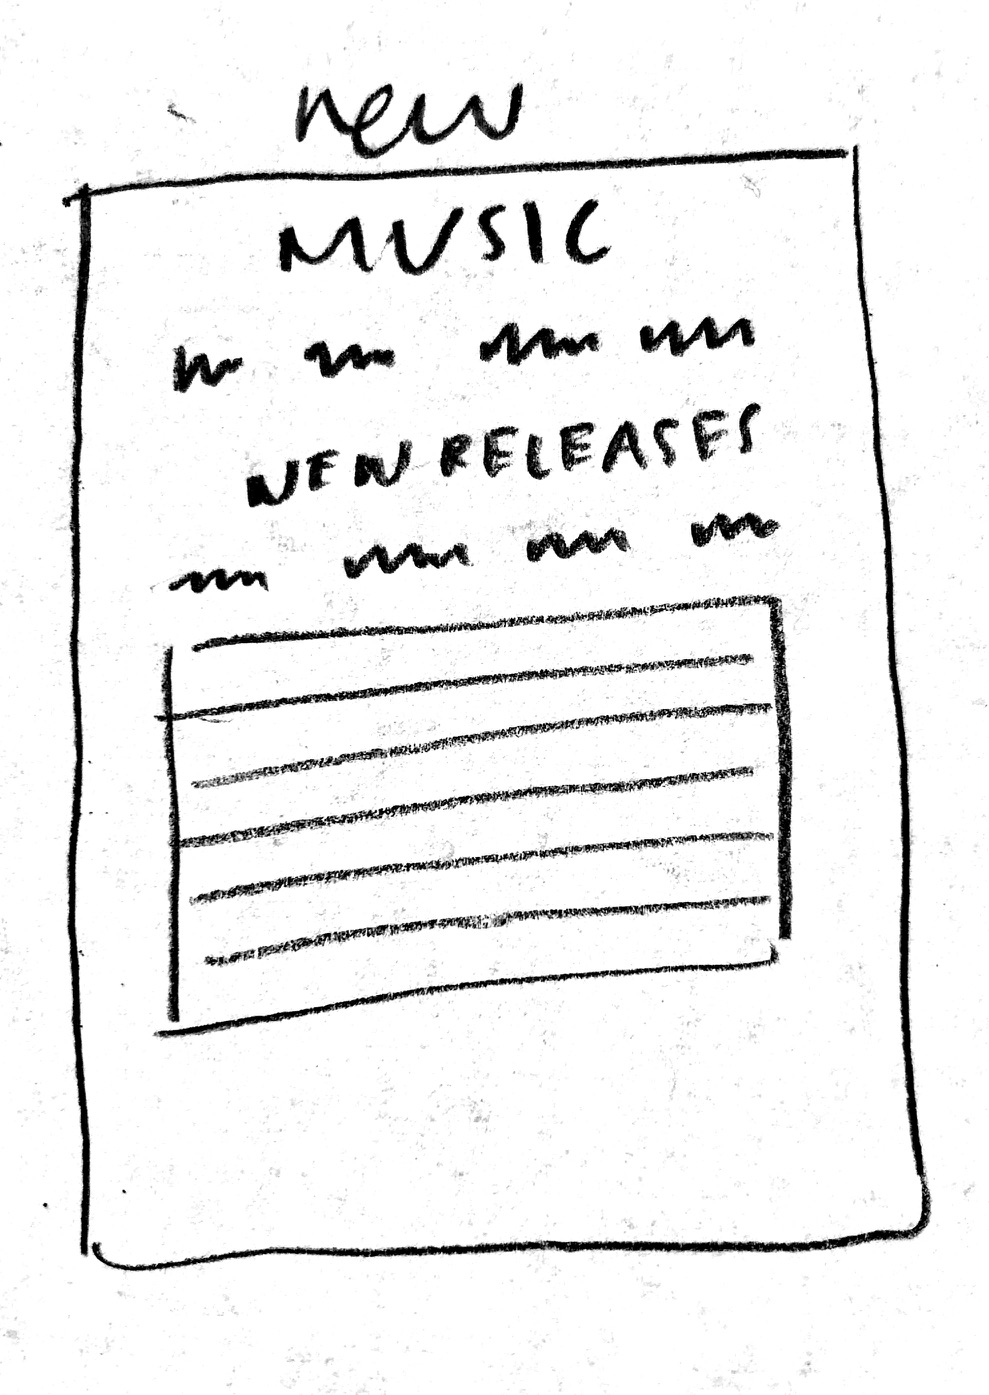 new
MUSIC
NEW RELEASES